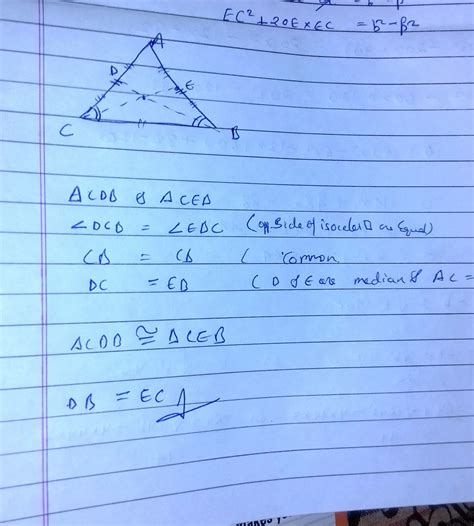 EC² + 2OE × EC = b² - β²
A
D
E
C
B
ΔCDB & ΔCEB
∠DCB = ∠EBC (opp. Side of isoceles Δ are Equal)
CB = CB ( common
DC = EB ( D & E are median of AC =
ΔCDB ≅ ΔCEB
DB = EC